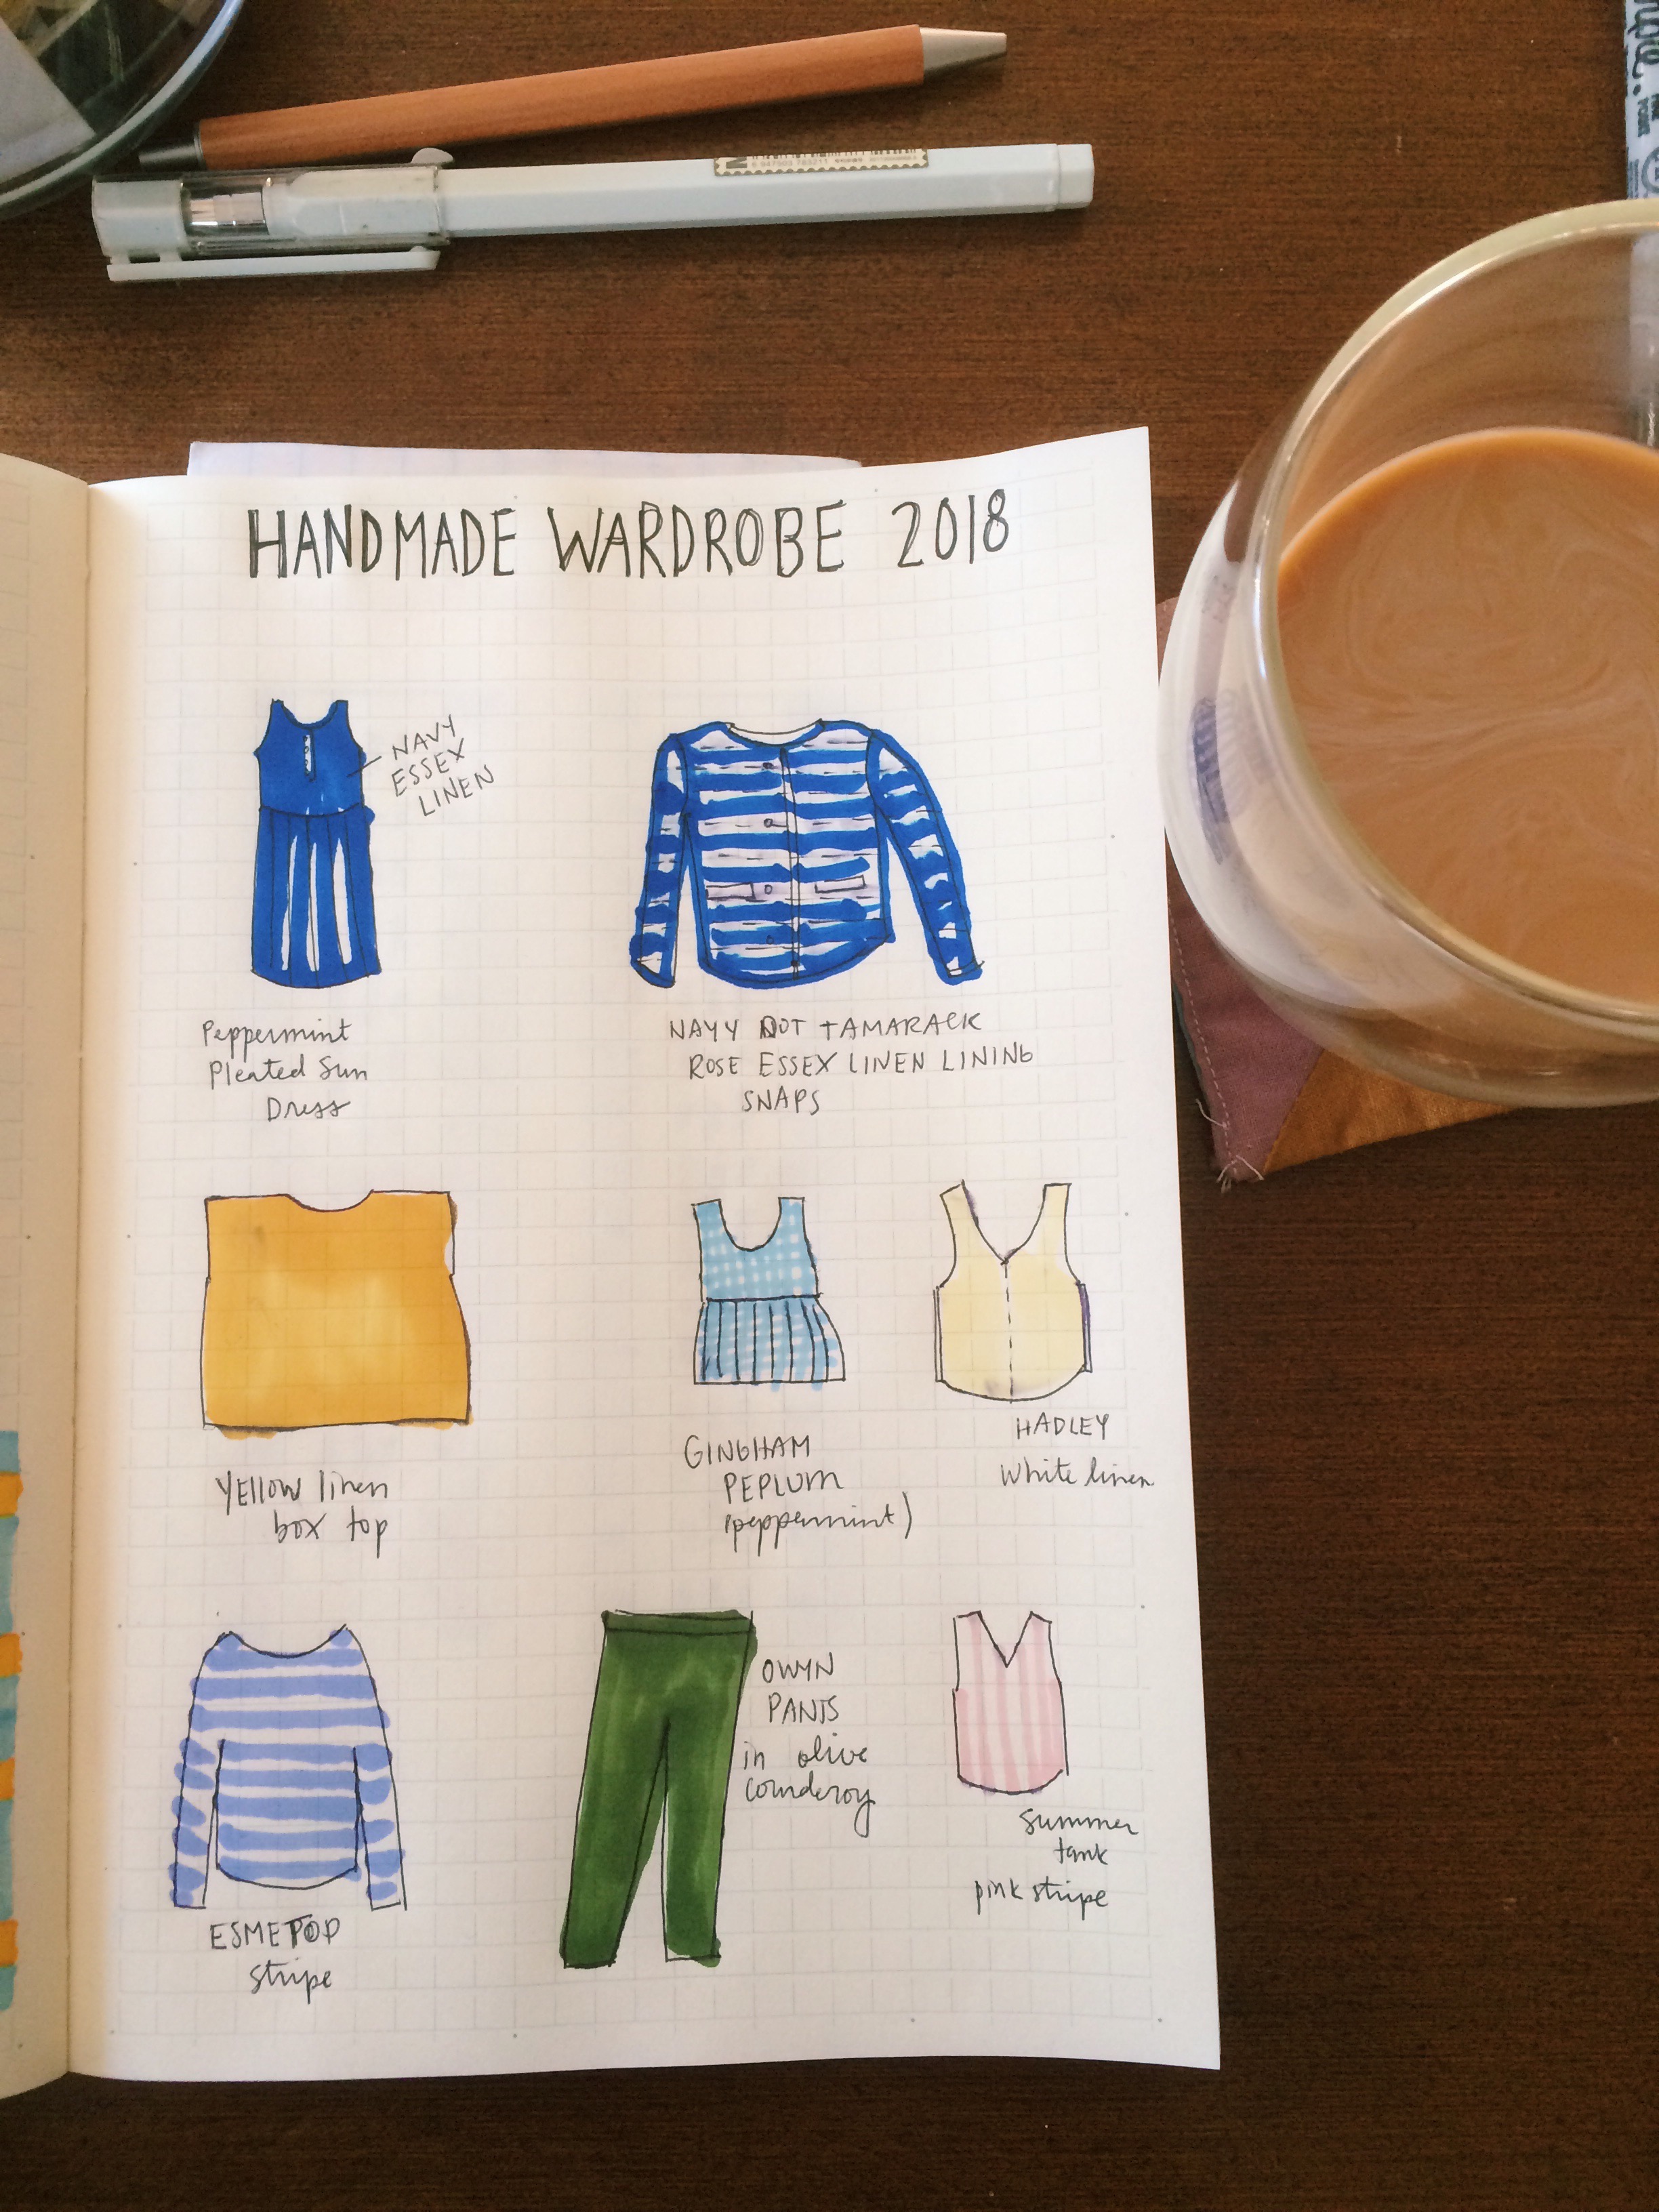 HANDMADE WARDROBE 2018
NAVY
ESSEX
LINEN
Peppermint
Pleated Sun
Dress
NAVY DOT TAMARACK
ROSE ESSEX LINEN LINING
SNAPS
YEllow linen
box top
GINGHAM
PEPLUM
(peppermint)
HADLEY
White linen
ESME TOP
stripe
OWYN
PANTS
in olive
Corderoy
Summer
tank
pink stripe